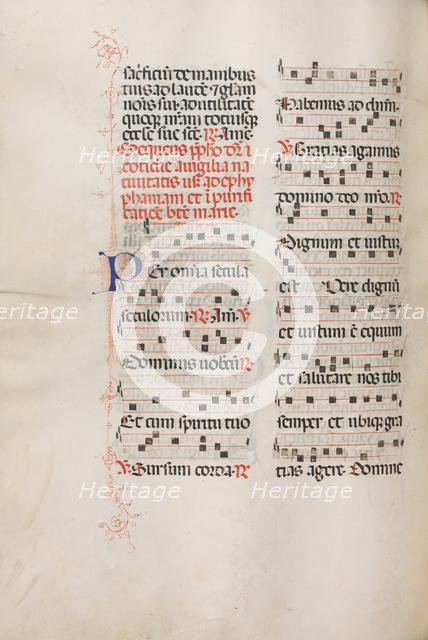 sacrificiu de manibus
tuis ad laude & glam
nois sui. ad utilitate
quoqz nram totiusqz
ecclie sue sce. R. Ame
Sequens pfatio dr
a uigilia na
tiuitatis usqz ad epy
phaniam et i purifi
catioe bte marie.
Per omnia secula
seculorum. R. Am. V.
Dominus uobcu R.
Et cum spiritu tuo
V. Sursum corda. R.
Habemus ad dnm.
V. Gratias agamus
domino deo nro. R.
Dignum et iustu
est Vere dignu
et iustum e equum
et salutare nos tibi
semper et ubiqz gra
tias agere. Domine
Heritage
Heritage
Heritage
Heritage
Heritage
Heritage
Heritage
Heritage